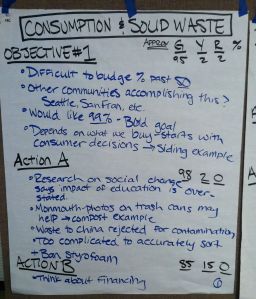 CONSUMPTION & SOLID WASTE
APPROV G Y R %
OBJECTIVE #1 95 2 2
• Difficult to budge % past
• Other communities accomplishing this >
Seattle, San Fran, etc.
• Would like 99% - Bold goal
• Depends on what we buy - starts with
consumer decisions → Siding example
Action A 98 2 0
• Research on social change
says impact of education is over-
stated.
• Monmouth - photos on trash cans may
help → compost example
• Waste to China rejected for contamination
• Too complicated to accurately sort
+ Ban styrofoam
ACTION B 85 15 0
• Think about financing
①